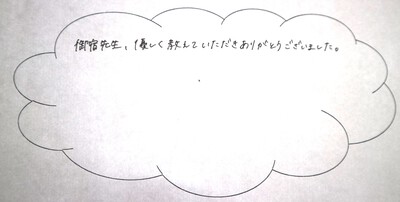 御宿先生、優しく教えていただきありがとうございました。